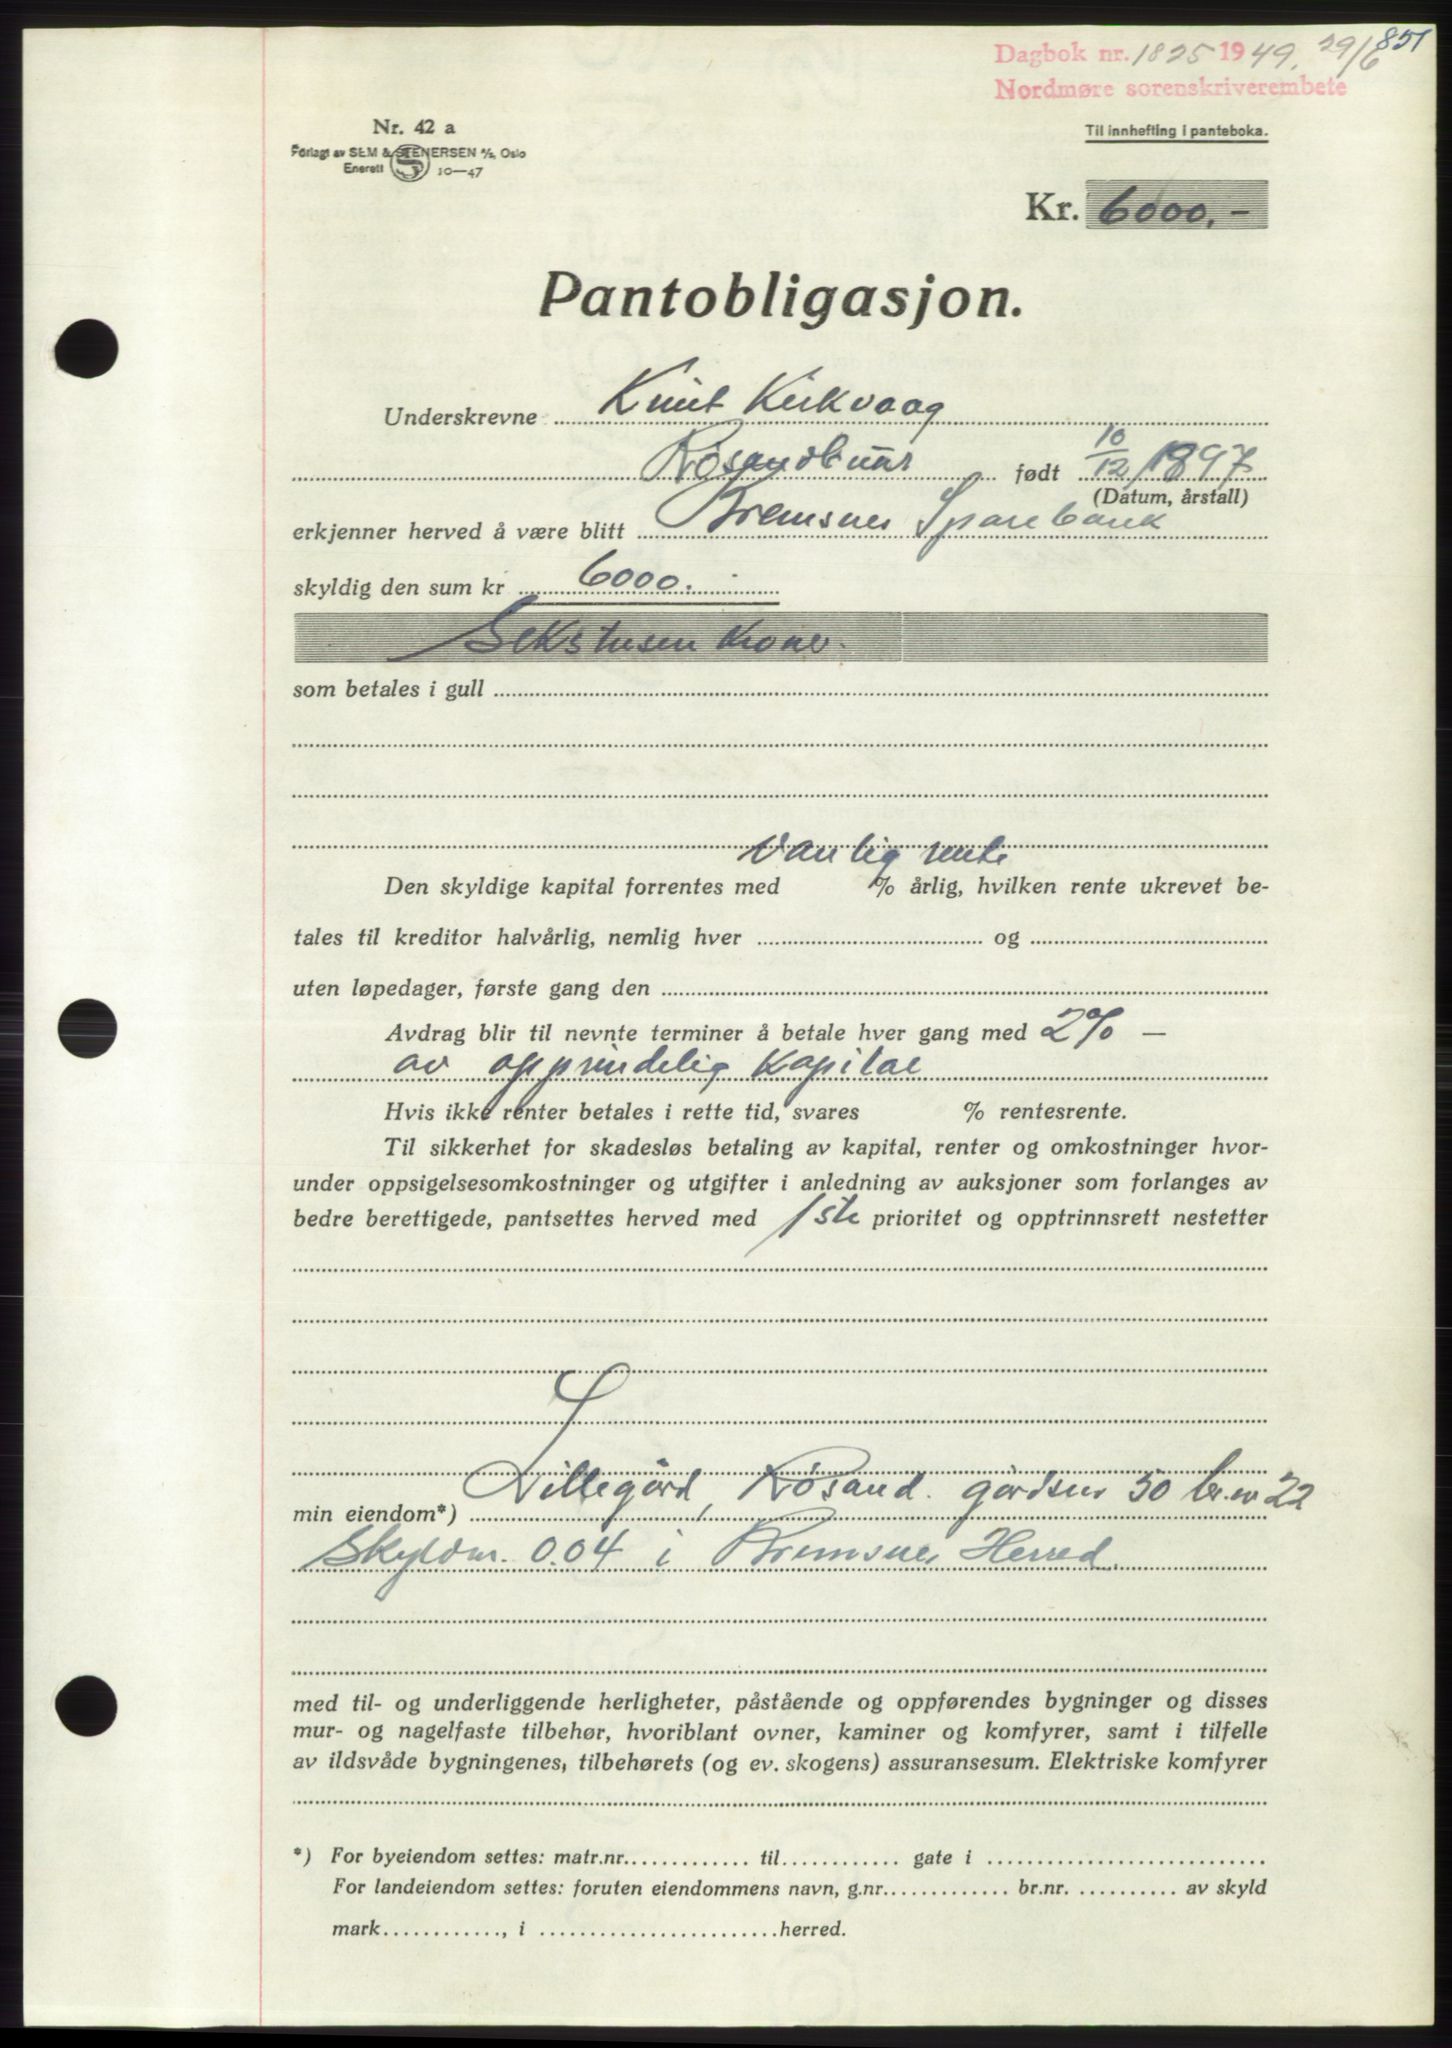 851
Dagbok nr. 1825 1949. 29/6
Nordmøre sorenskriverembete
Nr. 42 a
Forlagt av SEM & STENERSEN A/S, Oslo
Enerett 10—47
Til innhefting i panteboka.
Kr. 6000.-
Pantobligasjon.
Underskrevne Knut Kirkvaag
Røsandbuar født 10/12 1897
(Datum, årstall)
erkjenner herved å være blitt Bremsnes Sparebank
skyldig den sum kr 6000.-
Sekstusen Kroner.
som betales i gull
Vanlig rente
Den skyldige kapital forrentes med % årlig, hvilken rente ukrevet be-
tales til kreditor halvårlig, nemlig hver og
uten løpedager, første gang den
Avdrag blir til nevnte terminer å betale hver gang med 2% —
av opprindelig Kapital
Hvis ikke renter betales i rette tid, svares % rentesrente.
Til sikkerhet for skadesløs betaling av kapital, renter og omkostninger hvor-
under oppsigelsesomkostninger og utgifter i anledning av auksjoner som forlanges av
bedre berettigede, pantsettes herved med 1ste prioritet og opptrinnsrett nestetter
min eiendom*) Lillegård, Røsand. gårdsnr 50 br.nr 22
Skyldm. 0.04 i Bremsnes Herred.
med til- og underliggende herligheter, påstående og oppførendes bygninger og disses
mur- og nagelfaste tilbehør, hvoriblant ovner, kaminer og komfyrer, samt i tilfelle
av ildsvåde bygningenes, tilbehørets (og ev. skogens) assuransesum. Elektriske komfyrer
*) For byeiendom settes: matr.nr. til gate i
For landeiendom settes: foruten eiendommens navn, g.nr. br.nr. av skyld
mark, i herred.